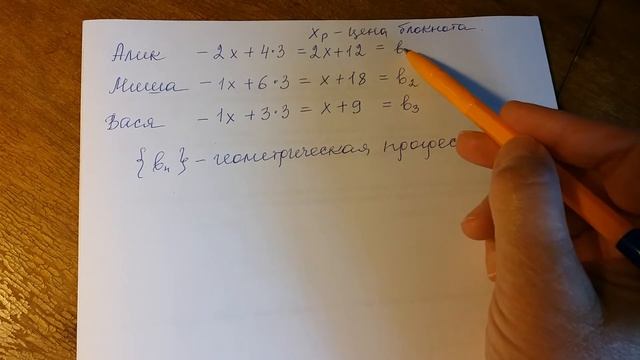 x р - цена блокната.
Алик - 2x + 4·3 = 2x+12 = в
Миша - 1x + 6·3 = x + 18 = в₂
Вася - 1x + 3·3 = x + 9 = в₃
{вₙ} - геометрическая прогрес